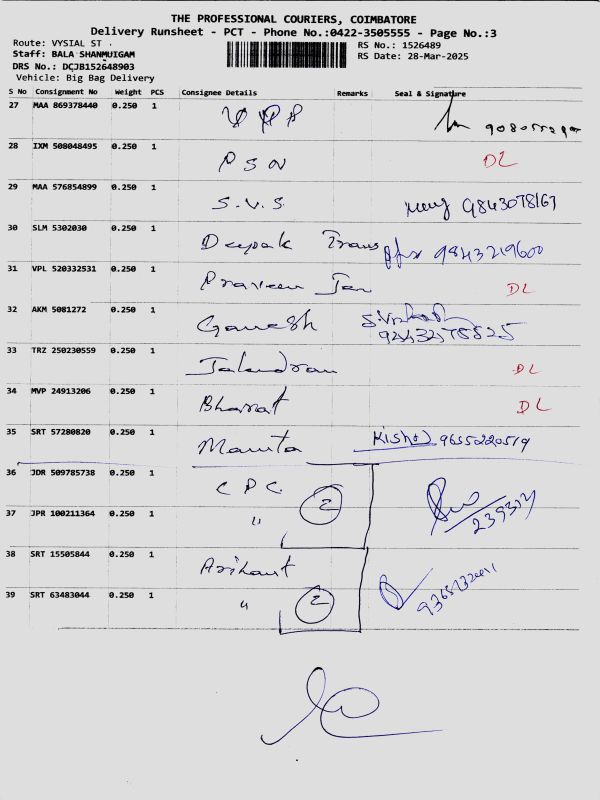 THE PROFESSIONAL COURIERS, COIMBATORE
Delivery Runsheet - PCT - Phone No.:0422-3505555 - Page No.:3
Route: VYSIAL ST
RS No.: 1526489
Staff: BALA SHANMUIGAM
RS Date: 28-Mar-2025
DRS No.: DCJB152648903
Vehicle: Big Bag Delivery
S No Consignment No Weight PCS Consignee Details Remarks Seal & Signature
27 MAA 869378440 0.250 1
28 IXM 508048495 0.250 1 P S N DL
29 MAA 576854899 0.250 1 S.V.S 9843078167
30 SLM 5302030 0.250 1 Deepak Trans 9843219600
31 VPL 520332531 0.250 1 Praveen DL
32 AKM 5081272 0.250 1 Ganesh
33 TRZ 250230559 0.250 1 DL
34 MVP 24913206 0.250 1 Bharat DL
35 SRT 57280820 0.250 1 Mamta 9655220519
36 JDR 509785738 0.250 1 C P C 2
37 JPR 100211364 0.250 1 "
38 SRT 15505844 0.250 1 Arihant
39 SRT 63483044 0.250 1 " 2